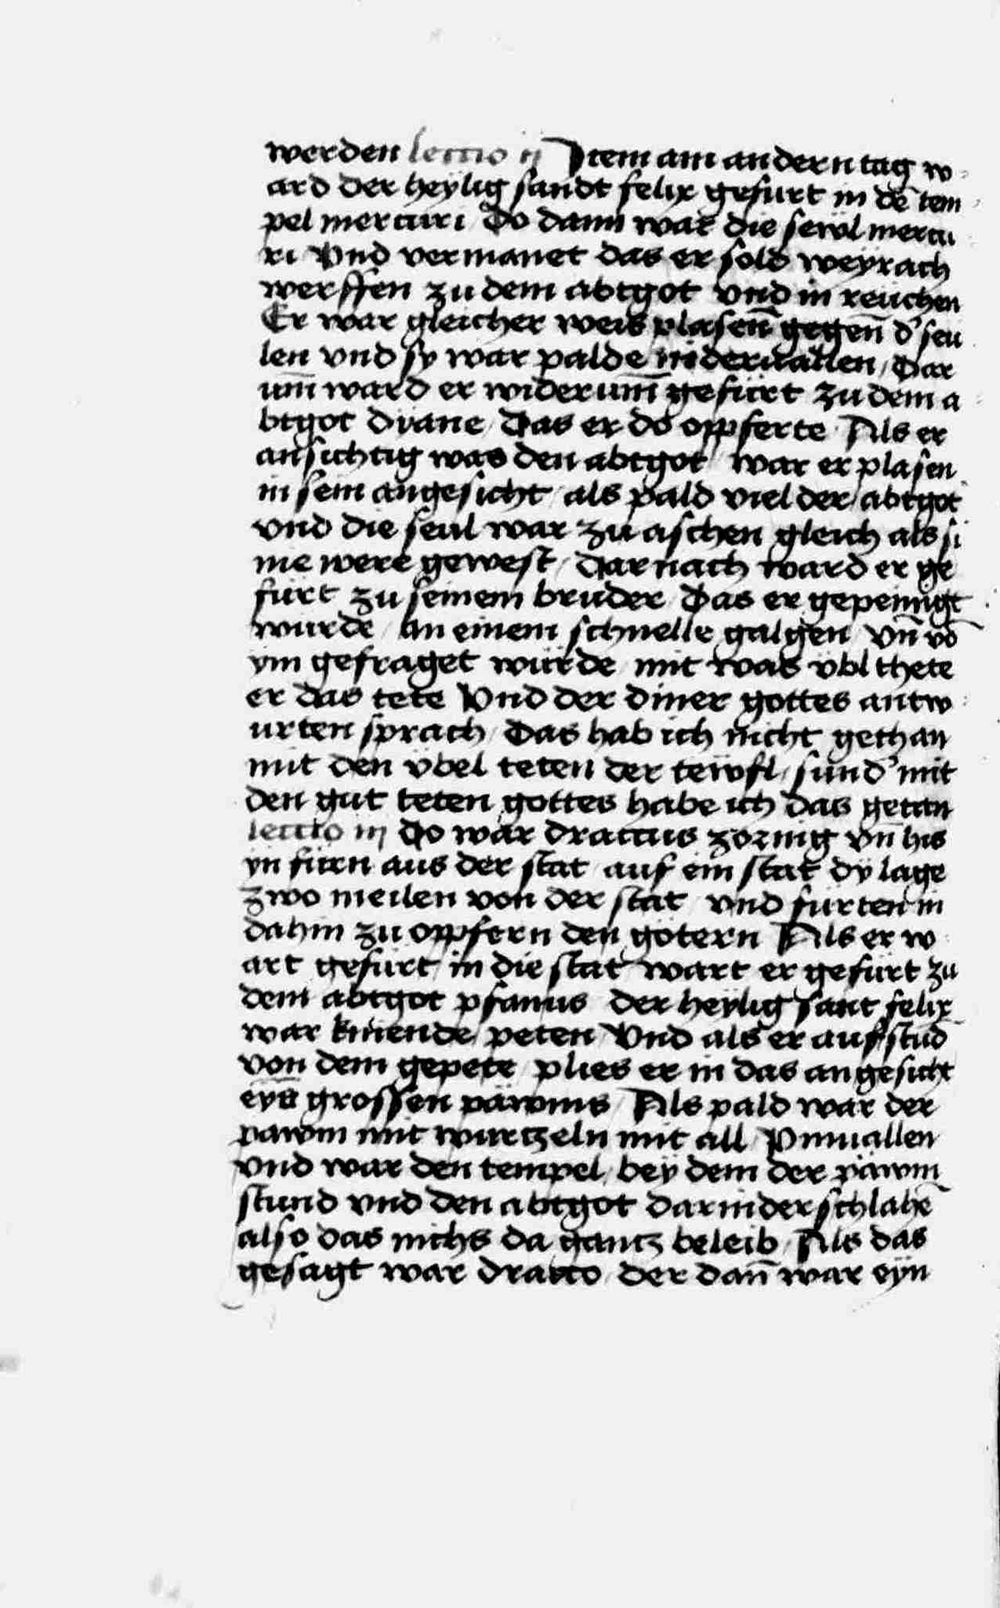 werden lectio ij Item am andern tag w
ard der heylig sandt felix gefurt in dē tem
pel mercuri Do dann war die sewl mercu
ri Vnd vermanet das er sold weyrach
werffen zu dem abtgot vnd in reuchen
Er war gleicher weis plasen̄ gegen̄ d' seu
len vnd sy war palde nideruallen / Dar
um̄ ward er widerum̄ gefürt zu dem a
btgot dyane / Das er do opferte Als er
ansichtig was den abtgot / war er plasen
in sein angesicht / als pald viel der abtgot
vnd die seul war zu aschen gleich als si
nie were gewest / Darnach ward er ge
fürt zu seinem bruder / Das er gepeinigt
wurde / an einem schnelle galgen / vn̄ vō
ym gefraget würde / mit was vbl thete
er das tete Vnd der diner gottes antw
urten sprach / Das hab ich nicht gethan
mit den vbel teten der tewfl / sund' mit
den gut teten gottes habe ich das getan
lectio iij Do war draccus zornig vn̄ his
yn fürn aus der stat / auf ein stat dy lage
zwo meilen von der stat / vnd fürten in
dahin zu opfern den götern Als er w
art gefürt / in die stat / wart er gefürt zu
dem abtgot pfanus / der heylig sant felix
war kniende / peten Vnd als er aufstūd
von dem gepete / plies er in das angesicht
eyn̄s grossen pawms / Als pald war der
pawm mit wurtzeln mit all / vmuallen
vnd war den tempel / bey dem der pawm
stund vnd den abtgot darnider schlahē
also das nichs da gantz beleib / Als das
gesagt war dracco / der dan̄ war eyn